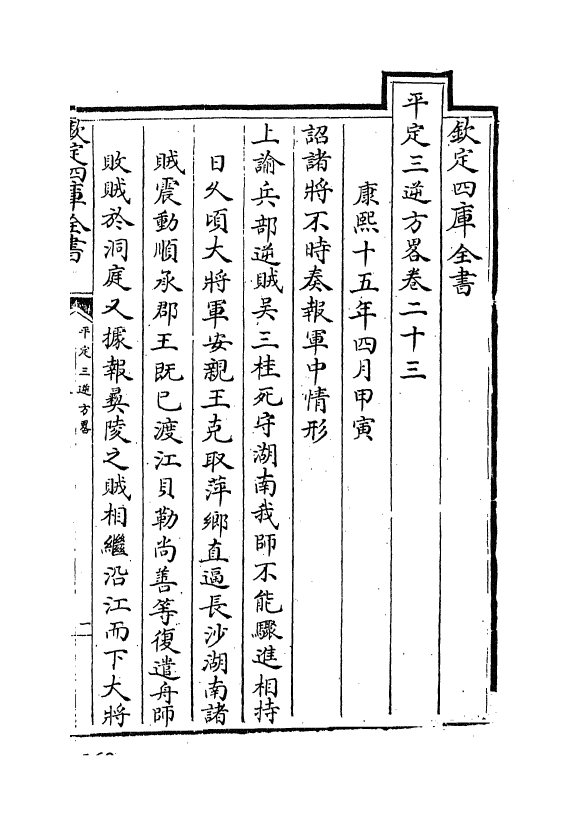 欽定四庫全書
平定三逆方畧卷二十三
康熙十五年四月甲寅
詔諸將不時奏報軍中情形
上諭兵部逆賊吳三桂死守湖南我師不能驟進相持
日久頃大將軍安親王克取萍鄉直逼長沙湖南諸
賊震動順承郡王既已渡江貝勒尚善等復遣舟師
敗賊於洞庭又據報彞陵之賊相繼沿江而下大將
欽定四庫全書
平定三逆方畧
一